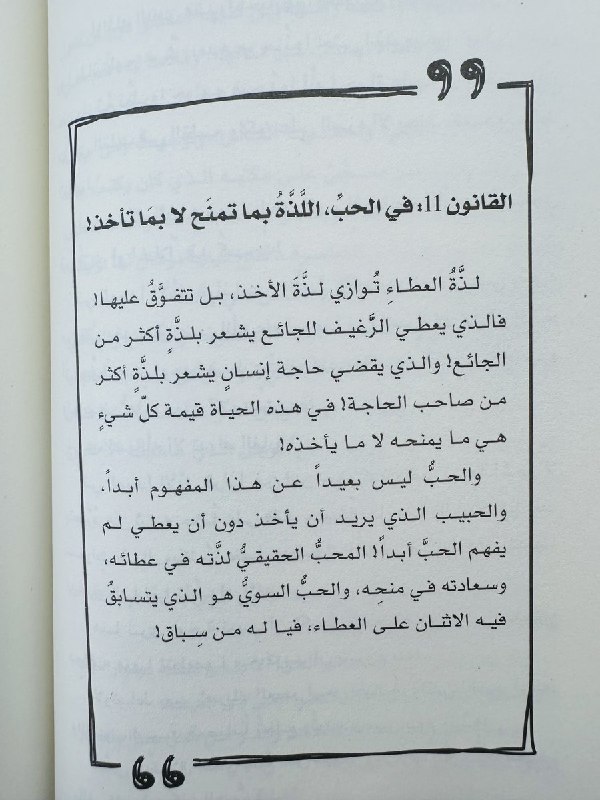 القانون 11: في الحبِّ، اللَّذَّةُ بما تمنَح لا بمَا تأخذ!
لذَّةُ العطاءِ تُوازي لذَّةَ الأخذ، بل تتفوَّقُ عليها!
فالذي يعطي الرَّغيف للجائع يشعر بلذَّةٍ أكثر من
الجائع! والذي يقضي حاجة إنسانٍ يشعر بلذَّةٍ أكثر
من صاحب الحاجة! في هذه الحياة قيمة كلّ شيءٍ
هي ما يمنحه لا ما يأخذه!
والحبُّ ليس بعيداً عن هذا المفهوم أبداً،
والحبيب الذي يريد أن يأخذ دون أن يعطي لم
يفهم الحبَّ أبداً! المحبُّ الحقيقيُّ لذَّته في عطائه،
وسعادته في منحِه، والحبُّ السويُّ هو الذي يتسابقُ
فيه الاثنان على العطاء، فيا له من سِباق!